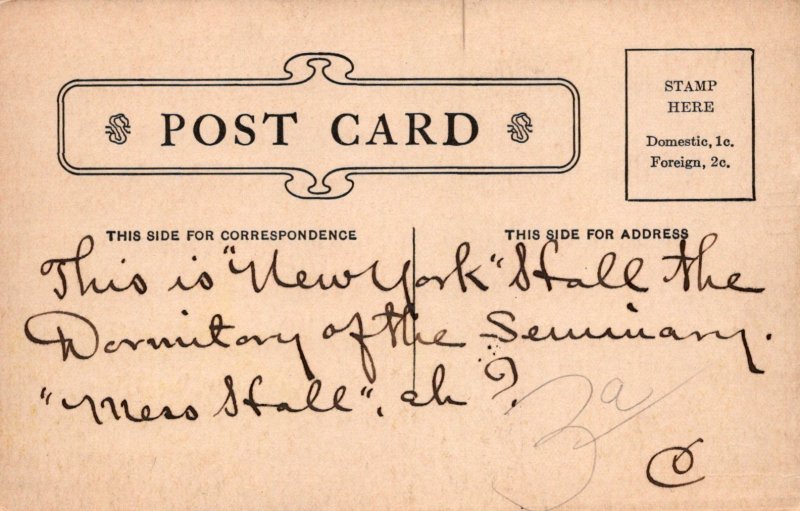 POST CARD
STAMP
HERE
Domestic, 1c.
Foreign, 2c.
THIS SIDE FOR CORRESPONDENCE
THIS SIDE FOR ADDRESS
This is "New York" Hall the
Dormitory of the Seminary.
"Mess Hall", eh ?
3a